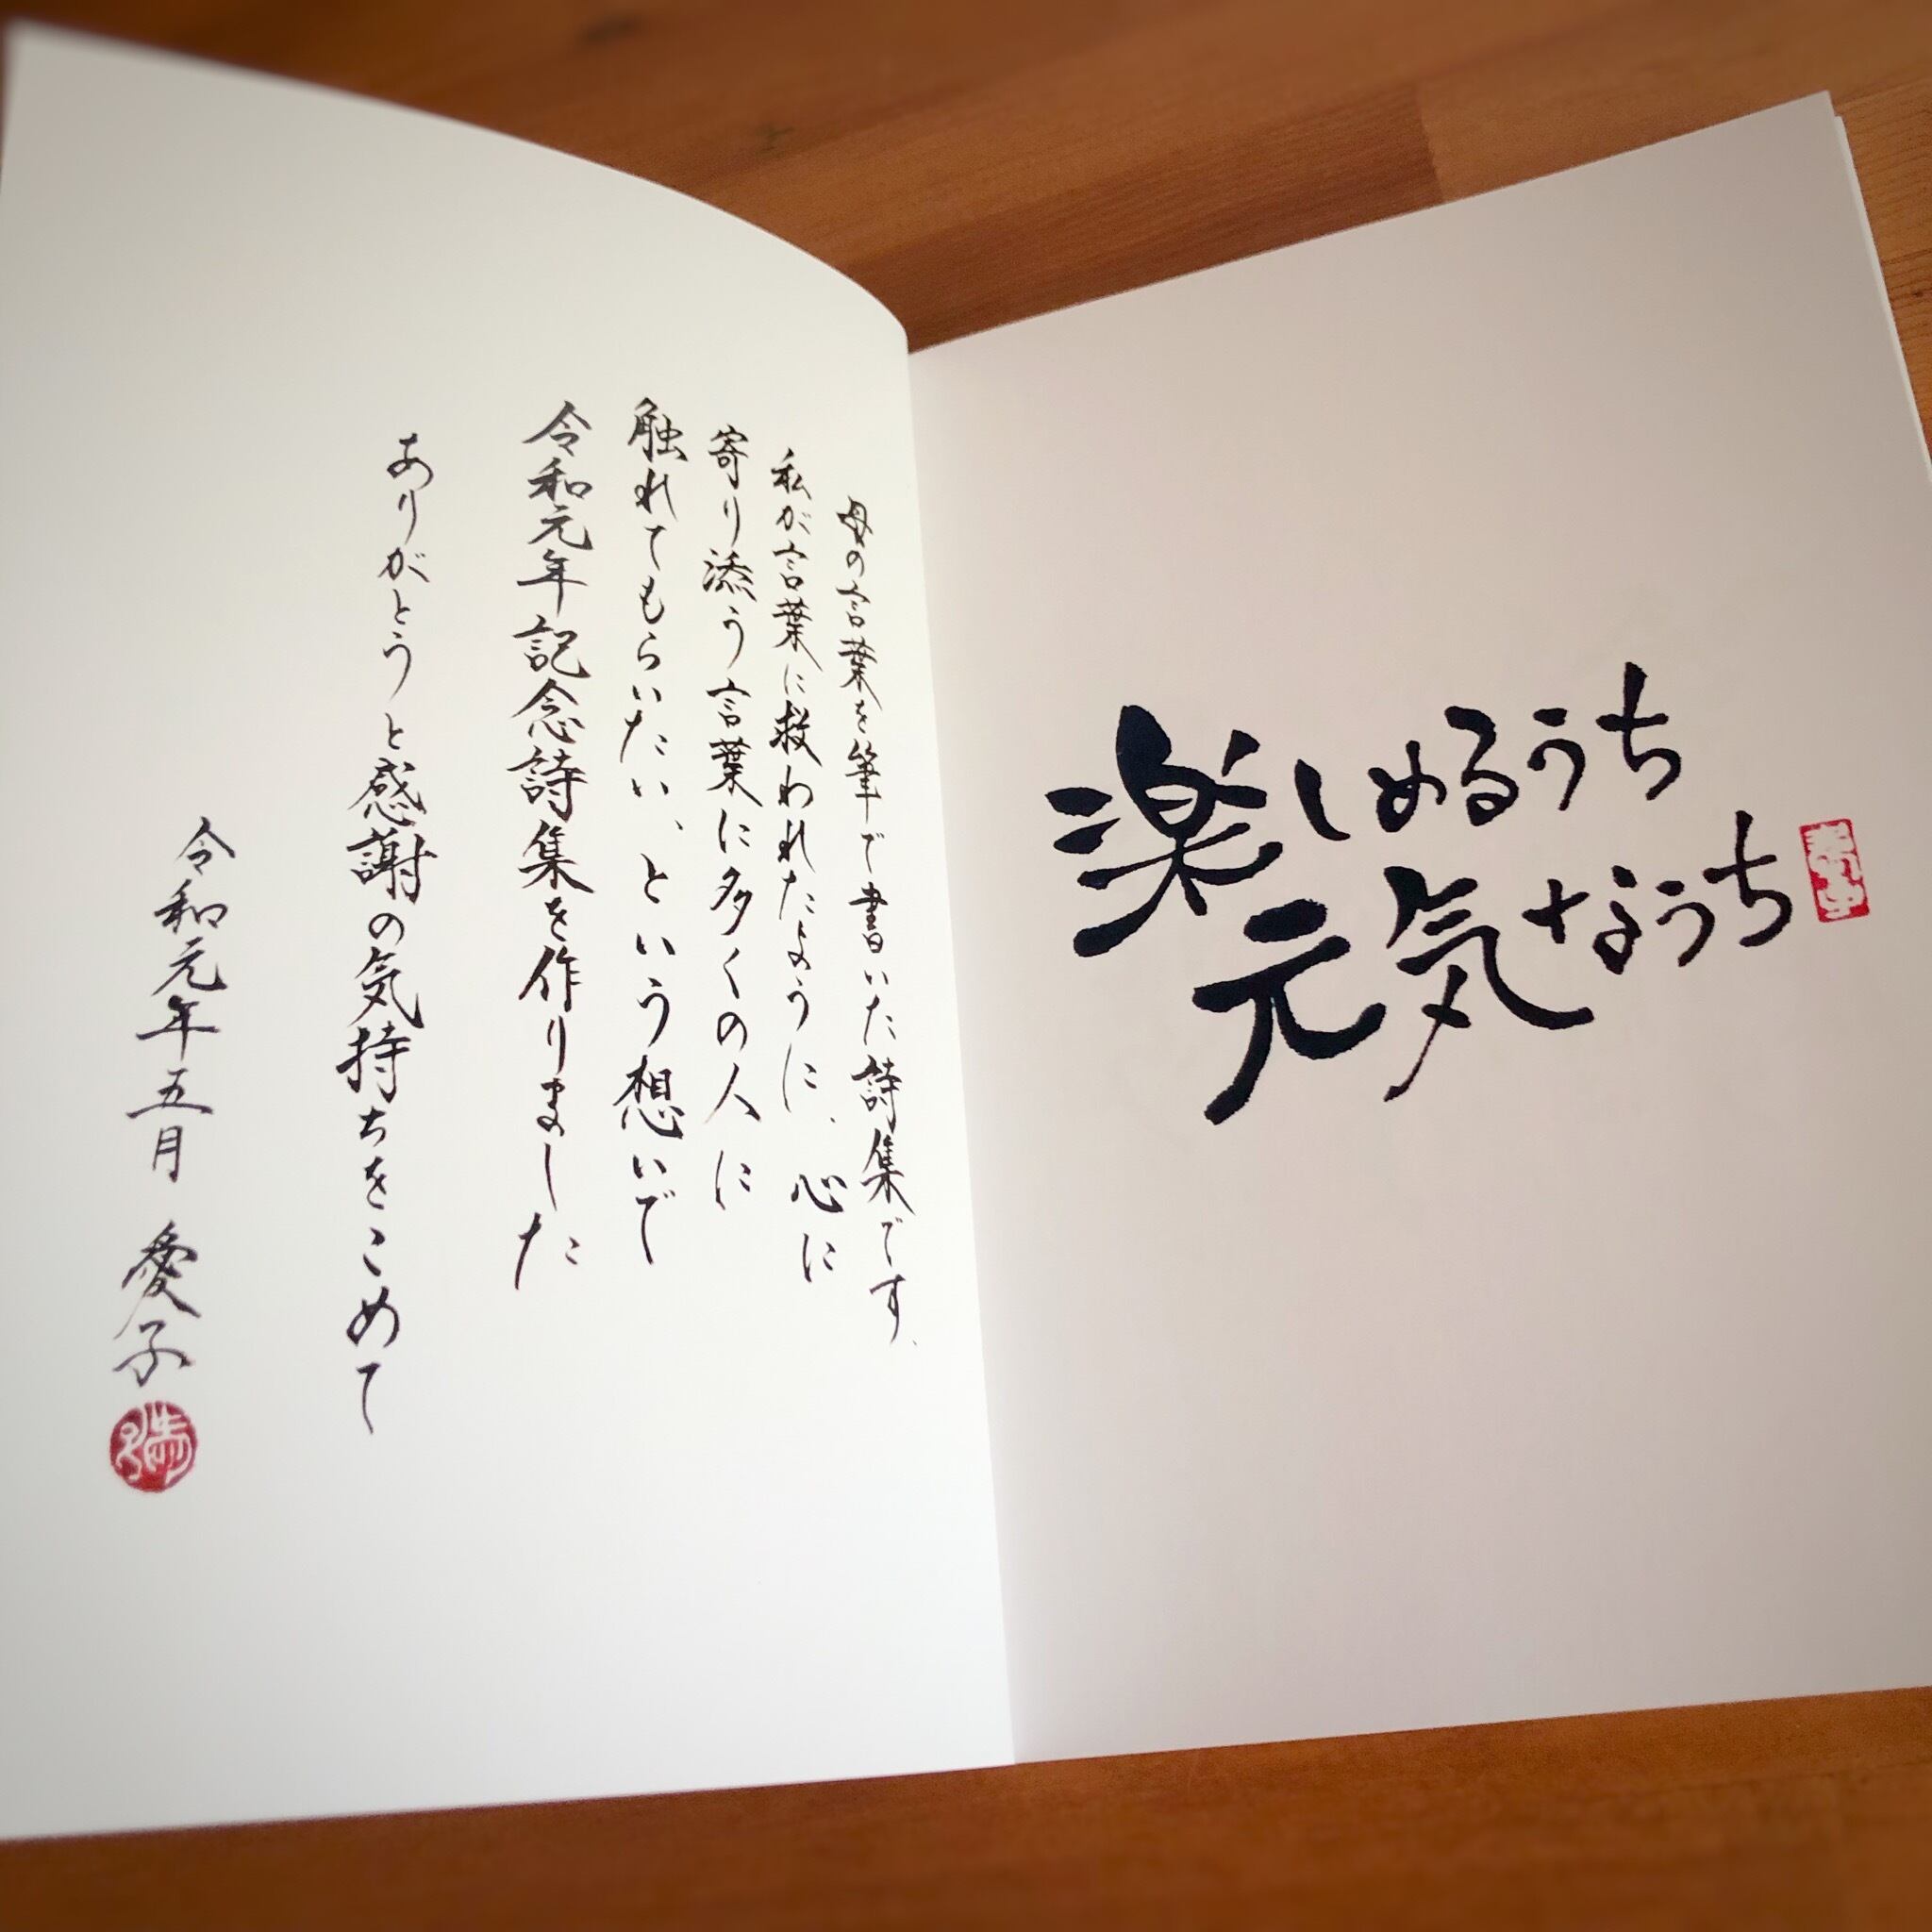 楽しめるうち
元気なうち
母の言葉を筆で書いた詩集です、
私が言葉に救われたように、心に
寄り添う言葉に多くの人に
触れてもらいたい、という想いで
令和元年記念詩集を作りました
ありがとうと感謝の気持ちをこめて
令和元年五月 愛子